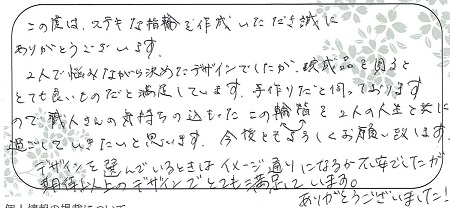 この度は、ステキな指輪を作成いただき誠に
ありがとうございます。
2人で悩みながら決めたデザインでしたが、完成品を見ると
とても良いものだと満足しています。手作りだと伺っております
ので職人さんの気持ちの込もったこの輪指を2人の人生と共に
過ごしていきたいと思います。今後ともよろしくお願い致します
デザインを選んでいるときはイメージ通りになるか不安でしたが
期待以上のデザインでとても満足しています。
ありがとうございました!
個人情報の掲載について